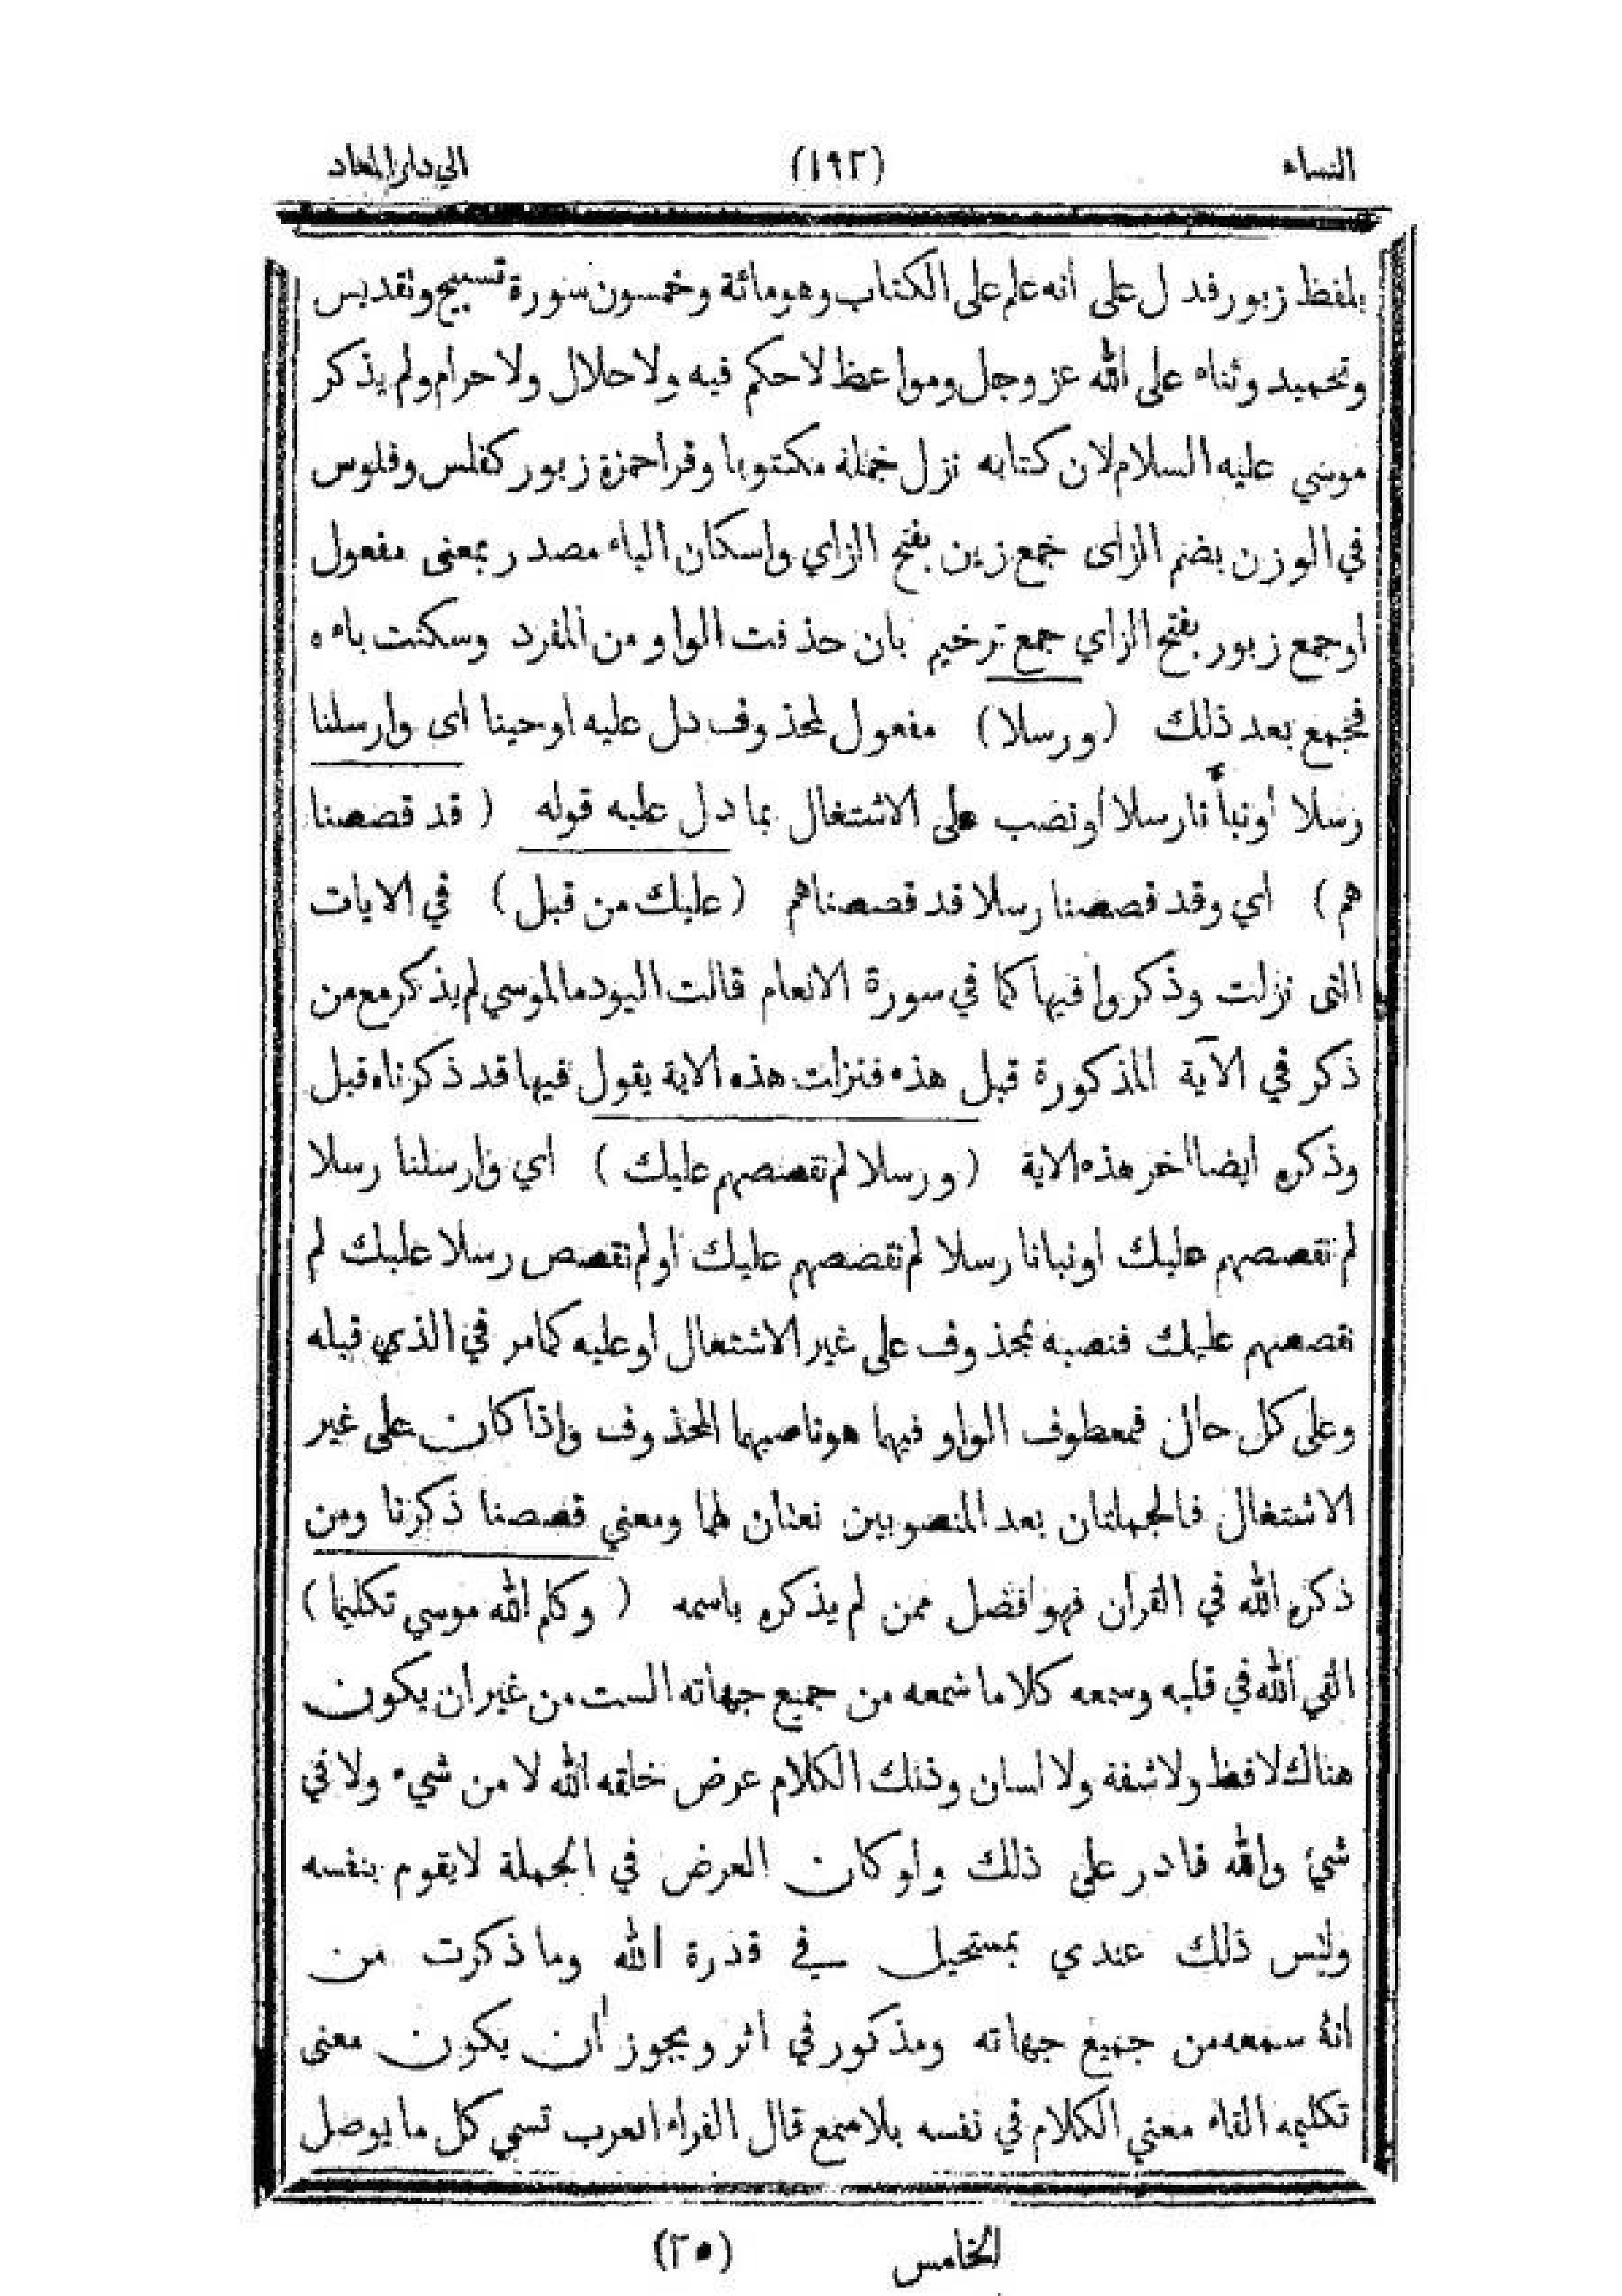 النساء (١٩٢) الي دار المعاد
بلفظ زبور فدل على انه علم على الكتاب وهو مائة وخمسون سورة تسبيح وتقديس
وتحميد وثناء على الله عز وجل ومواعظ لا حكم فيه ولا حلال ولا حرام ولم يذكر
موسي عليه السلام لان كتابه نزل جملة مكتوبا وقرا حمزة زبور كفلس وفلوس
في الوزن بضم الزاى جمع زبن بفتح الزاي واسكان الباء مصدر بمعنى مفعول
او جمع زبور بفتح الزاي جمع ترخيم بان حذفت الواو من المفرد وسكنت باءه
فجمع بعد ذلك (ورسلا) مفعول لمحذوف دل عليه اوحينا اى وارسلنا
رسلا أونبأنا رسلا أو نصب على الاشتغال بما دل عليه قوله (قد قصصنا
هم) اي وقد قصصنا رسلا قد قصصناهم (عليك من قبل) في الايات
التى نزلت وذكروا فيها كما في سورة الانعام قالت اليهود ما لموسي لم يذكر مع من
ذكر في الآية المذكورة قبل هذه فنزلت هذه الاية يقول فيها قد ذكرناه قبل
وذكره ايضا اخر هذه الاية (ورسلا لم نقصصهم عليك) اي وارسلنا رسلا
لم نقصصهم عليك او نبانا رسلا لم نقصصهم عليك أو لم نقصص رسلا عليك لم
نقصصهم عليك فنصبه بمحذوف على غير الاشتغال او عليه كما مر في الذي قبله
وعلى كل حال فمعطوف الواو فيهما هو ناصبهما المحذوف واذا كان على غير
الاشتغال فالجملتان بعد المنصوبين نعتان لهما ومعني قصصنا ذكرنا ومن
ذكره الله في القران فهو افضل ممن لم يذكره باسمه (وكلم الله موسي تكليما)
القي الله في قلبه وسمعه كلاما سمعه من جميع جهاته الست من غير ان يكون
هناك لافظ ولا شفة ولا لسان وذلك الكلام عرض خلقه الله لا من شيء ولا في
شيء والله قادر على ذلك ولو كان العرض في الجملة لا يقوم بنفسه
وليس ذلك عندي بمستحيل في قدرة الله وما ذكرت من
انه سمعه من جميع جهاته ومذكور في اثر ويجوز أن يكون معنى
تكليمه القاء معني الكلام في نفسه بلا سمع قال الفراء العرب تسمي كل ما يوصل
الخامس (٢٥)